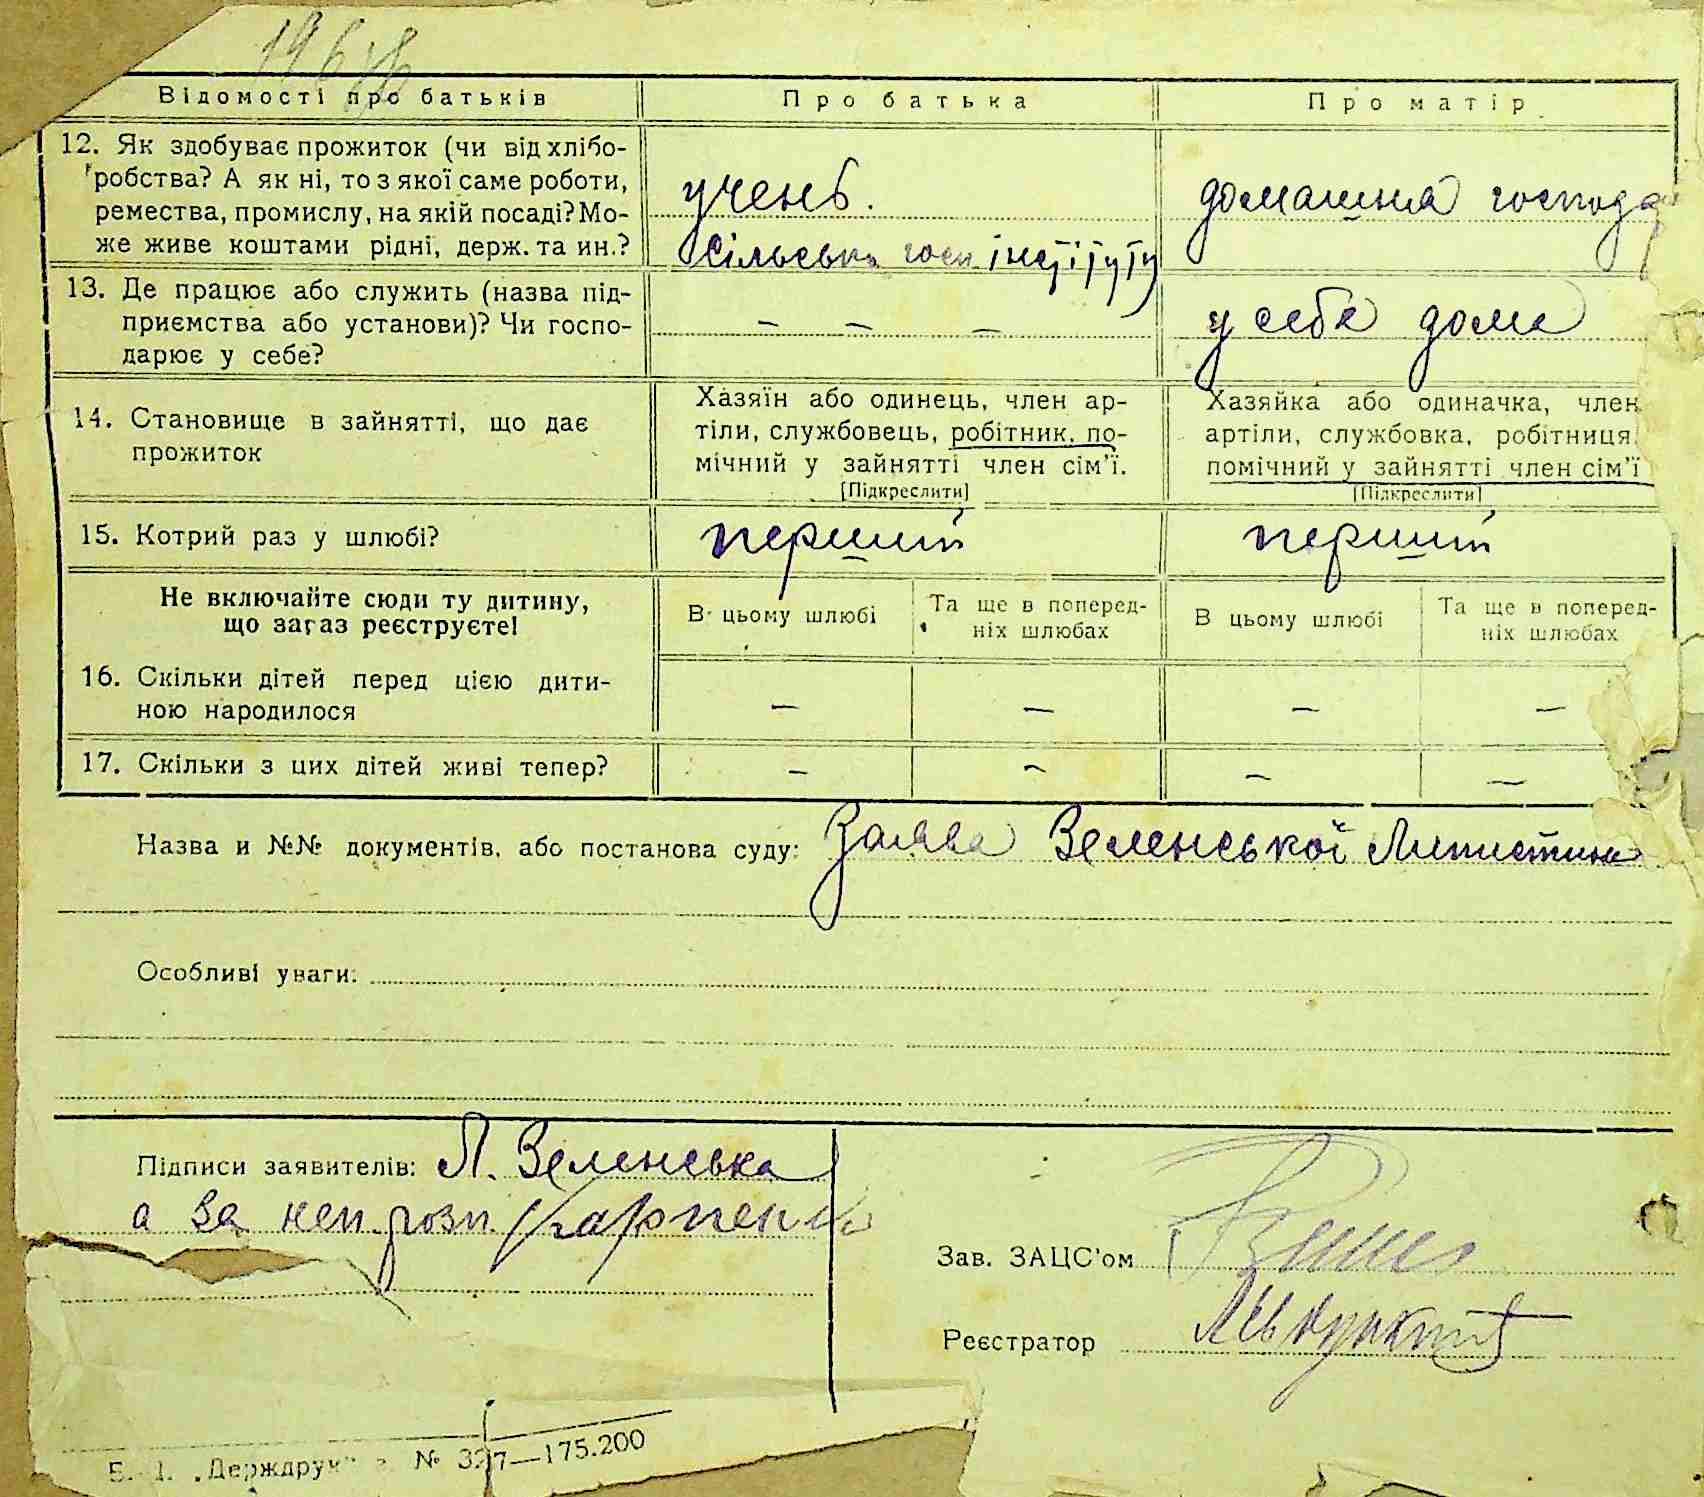 Відомості про батьків Про батька Про матір
12. Як здобуває прожиток (чи від хлібо-
робства? А як ні, то з якої саме роботи,
ремества, промислу, на якій посаді? Мо-
же живе коштами рідні, держ. та ин.?
учень.
сільсько госп. інституту
домашня господа
13. Де працює або служить (назва під-
приємства або установи)? Чи госпо-
дарює у себе?
– – –
у себе дома
14. Становище в зайнятті, що дає
прожиток
Хазяїн або одинець, член ар-
тіли, службовець, робітник, по-
мічний у зайнятті член сім'ї.
[Підкреслити]
Хазяйка або одиначка, член
артіли, службовка, робітниця,
помічний у зайнятті член сім'ї
[Підкреслити]
15. Котрий раз у шлюбі? перший перший
Не включайте сюди ту дитину,
що зараз реєструєте!
В цьому шлюбі
Та ще в поперед-
ніх шлюбах
В цьому шлюбі
Та ще в поперед-
ніх шлюбах
16. Скільки дітей перед цією дити-
ною народилося
– – – –
17. Скільки з цих дітей живі тепер? – – – –
Назва и №№ документів, або постанова суду: Заява Зеленської
Особливі уваги:
Підписи заявителів: Л. Зеленська
а за неп. розп.
Зав. ЗАЦС'ом
Реєстратор
„Держдрук" № 327—175.200